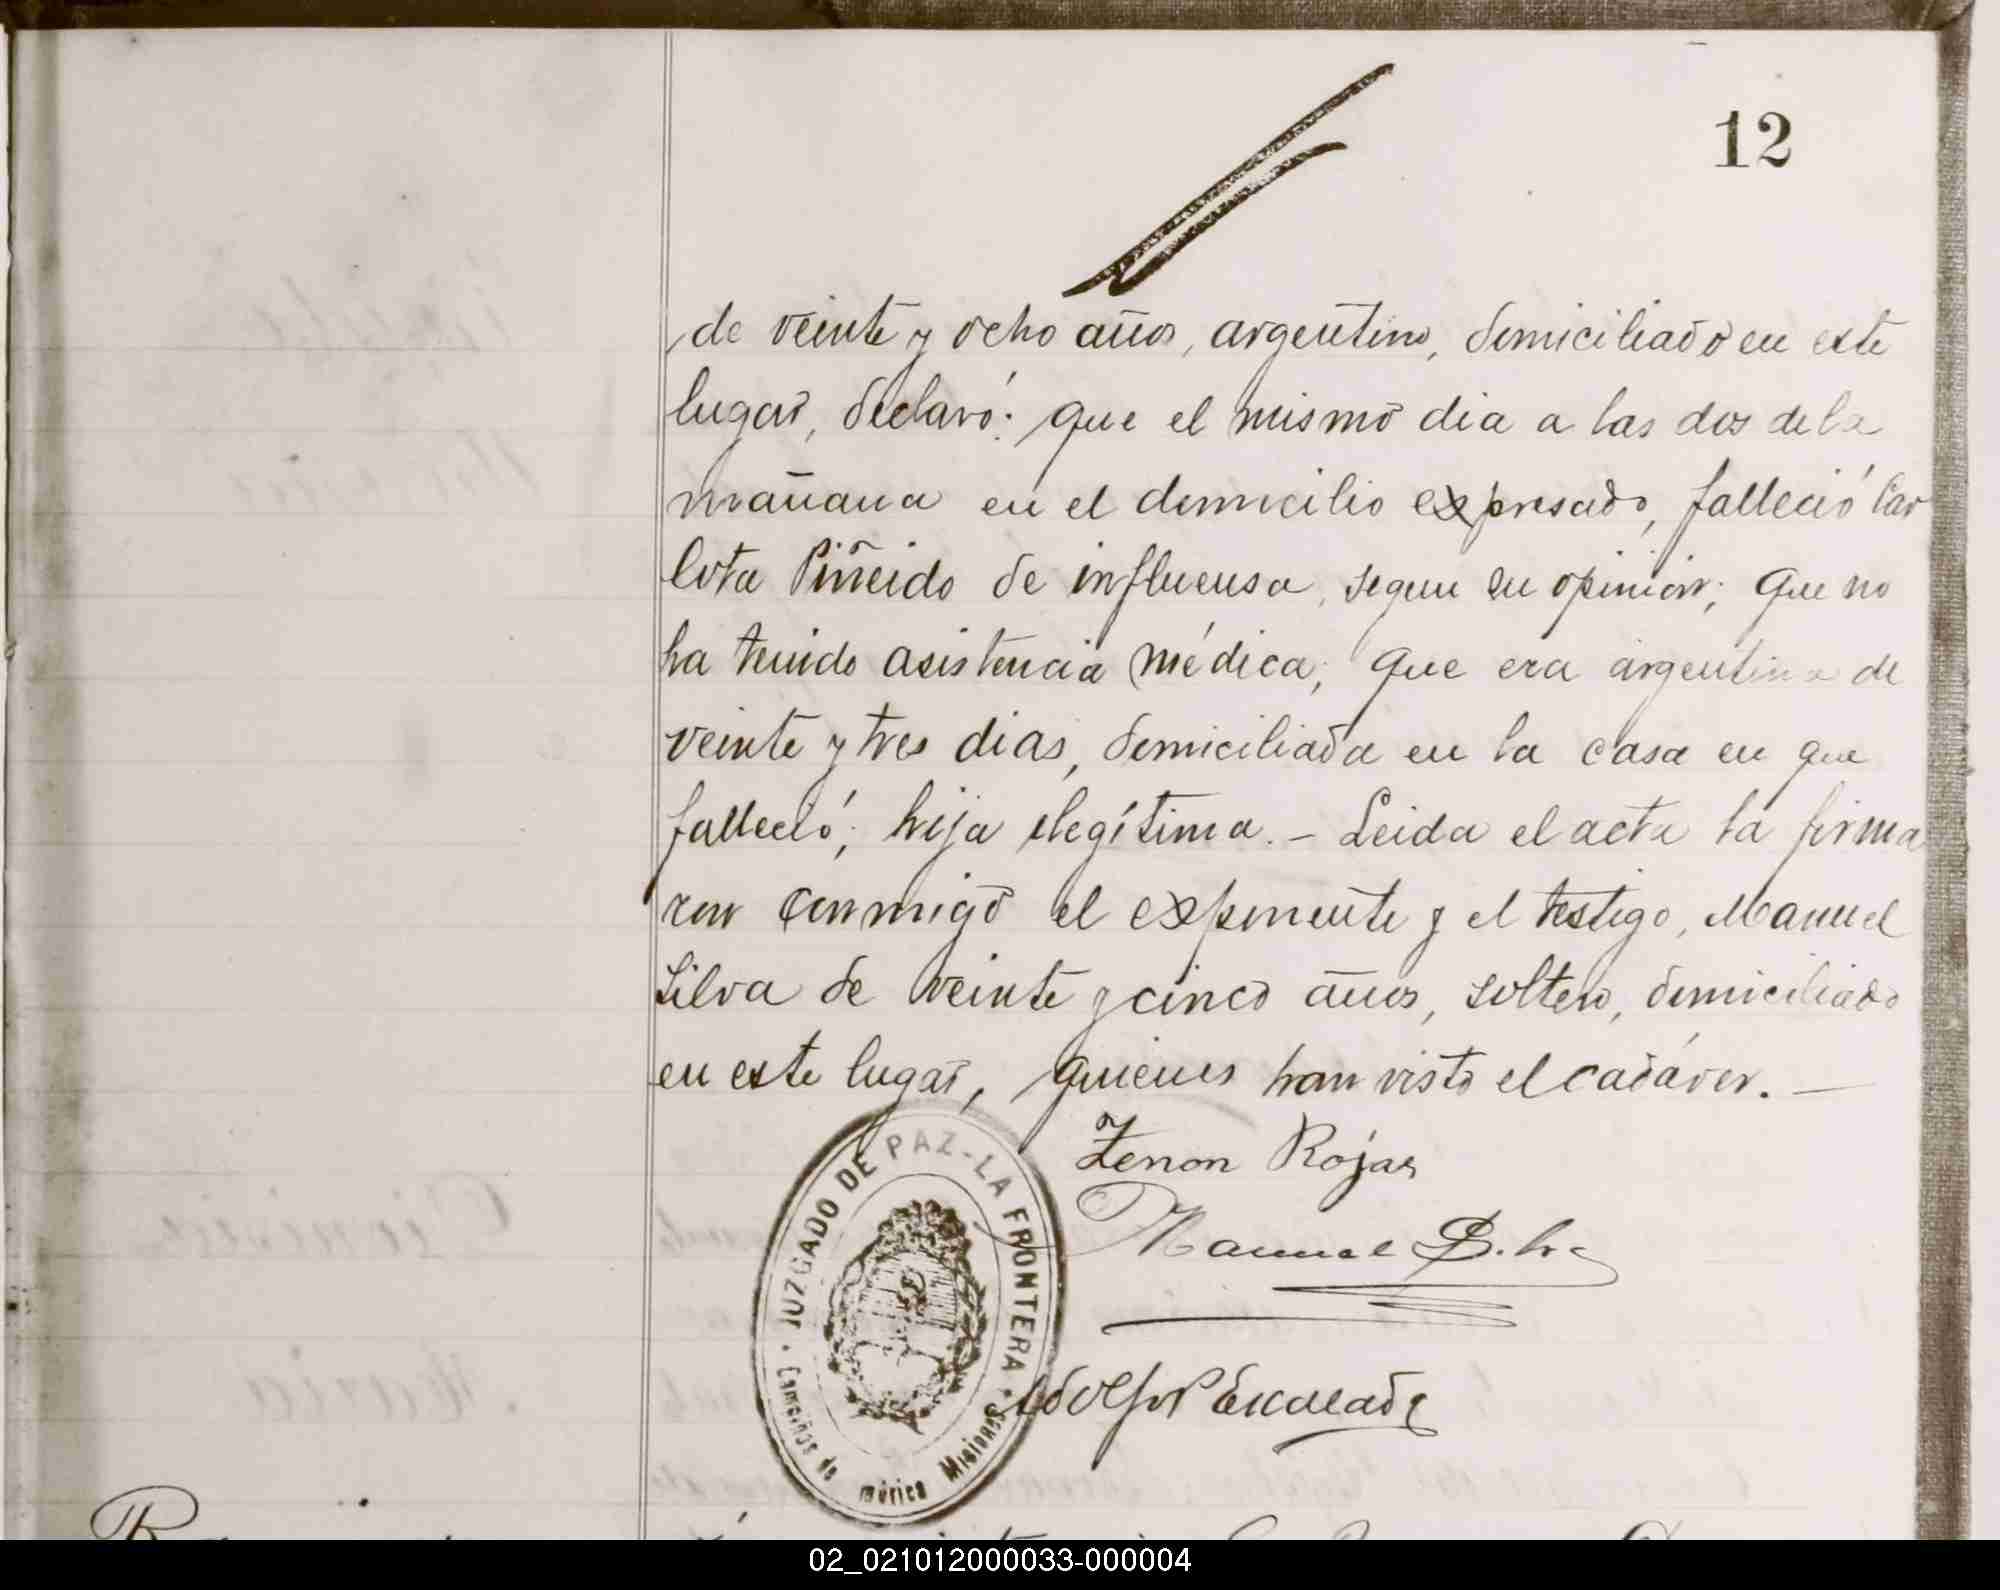 12
de veinte y ocho años, argentino, domiciliado en este
lugar, declaró: que el mismo dia a las dos de la
mañana en el domicilio expresado, falleció Car
lota Piñeido de influensa, segun su opinión; que no
ha tenido asistencia médica; que era argentina de
veinte y tres dias, domiciliada en la casa en que
falleció; hija ilegítima. - Leida el acta la firma
ron conmigo el exponente y el testigo, Manuel
Silva de veinte y cinco años, soltero, domiciliado
en este lugar, quienes han visto el cadáver. —
Zenon Rojas
Manuel Silva
Adolfo P Escalada
JUZGADO DE PAZ - LA FRONTERA
Misiones
02_021012000033-000004